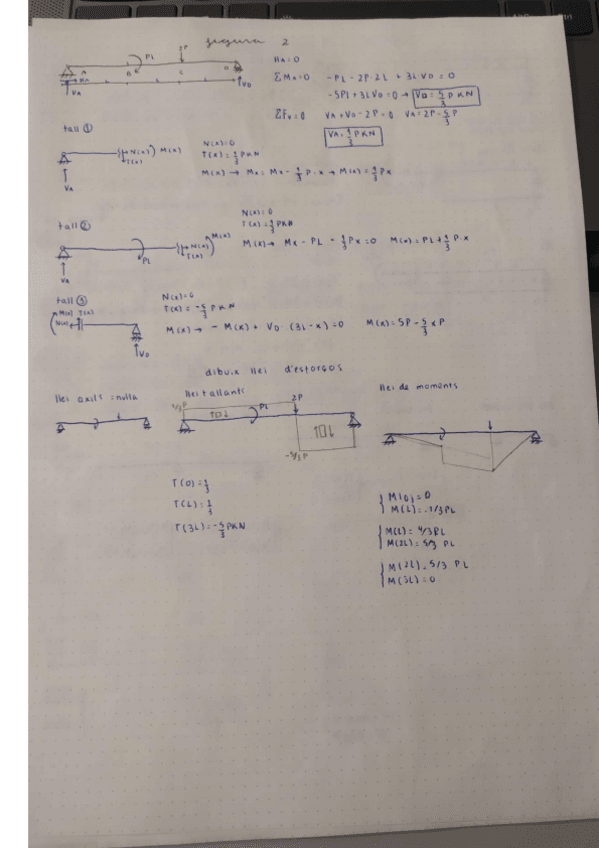 figura 2
PL 2P
A B C D
HA
VA VD
HA = 0
ΣMA=0 -PL - 2P·2L + 3L VD = 0
-5PL + 3L VD = 0 → VD = 5/3 P KN
ΣFv=0 VA + VD - 2P = 0 VA = 2P - 5/3 P
VA = 1/3 P KN
tall ①
N(x) M(x)
T(x)
VA
N(x)=0
T(x) = 1/3 PKN
M(x) → Mx = Mx - 1/3 P·x → M(x) = 1/3 Px
tall ②
M(x)
N(x)
T(x)
PL
VA
N(x)=0
T(x) = 1/3 PKN
M(x) → Mx - PL - 1/3 Px = 0 M(x) = PL + 1/3 P·x
tall ③
M(x) T(x)
N(x)
VD
N(x)=0
T(x) = -5/3 P KN
M(x) → - M(x) + VD · (3L-x) = 0 M(x) = 5P - 5/3 xP
dibuix llei d'esforços
llei axils = nulla
llei tallants
1/3 P PL 2P
-5/3 P
T(0) = 1/3
T(L) = 1/3
T(3L) = -5/3 PKN
llei de moments
M(0) = 0
M(L) = 1/3 PL
M(L) = 4/3 PL
M(2L) = 5/3 PL
M(2L) = 5/3 PL
M(3L) = 0